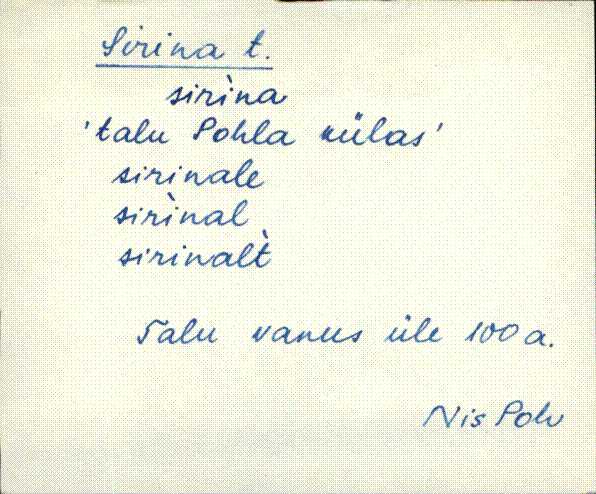 Sirina t.
sirìna
'talu Pohla külas'
sirinale
sirìnal
sirinalt̀
Talu vanus üle 100 a.
Nis Poh